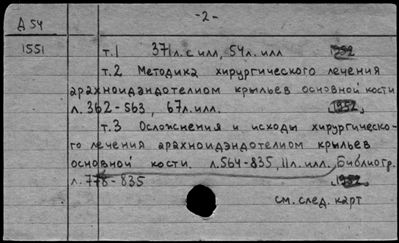 - 2 -
Д 54
1551
т.1 371 л. с илл, 54 л. илл 1952
т.2 Методика хирургического лечения
арахноидэндотелиом крыльев основной кости
л. 362-563, 67 л. илл. 1952.
т.3 Осложнения и исходы хирургическо-
го лечения арахноидэндотелиом крыльев
основной кости. л. 564-835, 11 л. илл., Библиогр.
л. 778-835 1952.
см. след. карт